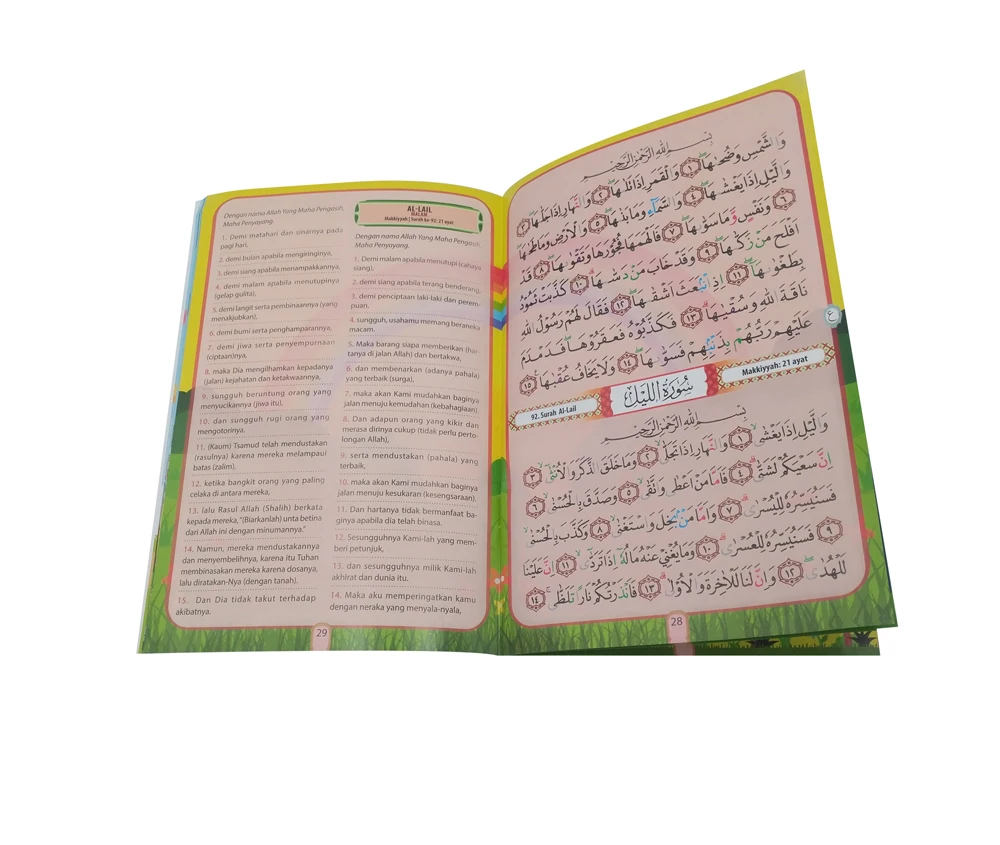 بِسْمِ اللّٰهِ الرَّحْمٰنِ الرَّحِيْمِ
وَالشَّمْسِ وَضُحٰىهَا ۝١ وَالْقَمَرِ اِذَا تَلٰىهَا ۝٢ وَالنَّهَارِ اِذَا جَلّٰىهَا ۝٣
وَالَّيْلِ اِذَا يَغْشٰىهَا ۝٤ وَالسَّمَاۤءِ وَمَا بَنٰىهَا ۝٥ وَالْاَرْضِ وَمَا طَحٰىهَا
۝٦ وَنَفْسٍ وَّمَا سَوّٰىهَا ۝٧ فَاَلْهَمَهَا فُجُوْرَهَا وَتَقْوٰىهَا ۝٨ قَدْ
اَفْلَحَ مَنْ زَكّٰىهَا ۝٩ وَقَدْ خَابَ مَنْ دَسّٰىهَا ۝١٠ كَذَّبَتْ ثَمُوْدُ
بِطَغْوٰىهَا ۝١١ اِذِ انْۢبَعَثَ اَشْقٰىهَا ۝١٢ فَقَالَ لَهُمْ رَسُوْلُ اللّٰهِ
نَاقَةَ اللّٰهِ وَسُقْيٰهَا ۝١٣ فَكَذَّبُوْهُ فَعَقَرُوْهَا فَدَمْدَمَ
عَلَيْهِمْ رَبُّهُمْ بِذَنْۢبِهِمْ فَسَوّٰىهَا ۝١٤ وَلَا يَخَافُ عُقْبٰهَا ۝١٥
ع
92. Surah Al-Lail سُوْرَةُ الَّيْلِ Makkiyyah: 21 ayat
بِسْمِ اللّٰهِ الرَّحْمٰنِ الرَّحِيْمِ
وَالَّيْلِ اِذَا يَغْشٰى ۝١ وَالنَّهَارِ اِذَا تَجَلّٰى ۝٢ وَمَا خَلَقَ الذَّكَرَ وَالْاُنْثٰى ۝٣
اِنَّ سَعْيَكُمْ لَشَتّٰى ۝٤ فَاَمَّا مَنْ اَعْطٰى وَاتَّقٰى ۝٥ وَصَدَّقَ بِالْحُسْنٰى ۝٦
فَسَنُيَسِّرُهٗ لِلْيُسْرٰى ۝٧ وَاَمَّا مَنْۢ بَخِلَ وَاسْتَغْنٰى ۝٨ وَكَذَّبَ بِالْحُسْنٰى
۝٩ فَسَنُيَسِّرُهٗ لِلْعُسْرٰى ۝١٠ وَمَا يُغْنِيْ عَنْهُ مَالُهٗٓ اِذَا تَرَدّٰى ۝١١ اِنَّ عَلَيْنَا
لَلْهُدٰى ۝١٢ وَاِنَّ لَنَا لَلْاٰخِرَةَ وَالْاُوْلٰى ۝١٣ فَاَنْذَرْتُكُمْ نَارًا تَلَظّٰى ۝١٤
28
Dengan nama Allah Yang Maha Pengasih,
Maha Penyayang.
1. Demi matahari dan sinarnya pada
pagi hari,
2. demi bulan apabila mengiringinya,
3. demi siang apabila menampakkannya,
4. demi malam apabila menutupinya
(gelap gulita),
5. demi langit serta pembinaannya (yang
menakjubkan),
6. demi bumi serta penghamparannya,
7. demi jiwa serta penyempurnaan
(ciptaan)nya,
8. maka Dia mengilhamkan kepadanya
(jalan) kejahatan dan ketakwaannya,
9. sungguh beruntung orang yang
menyucikannya (jiwa itu),
10. dan sungguh rugi orang yang
mengotorinya.
11. (Kaum) Tsamud telah mendustakan
(rasulnya) karena mereka melampaui
batas (zalim),
12. ketika bangkit orang yang paling
celaka di antara mereka,
13. lalu Rasul Allah (Shalih) berkata
kepada mereka, “(Biarkanlah) unta betina
dari Allah ini dengan minumannya.”
14. Namun, mereka mendustakannya
dan menyembelihnya, karena itu Tuhan
membinasakan mereka karena dosanya,
lalu diratakan-Nya (dengan tanah).
15. Dan Dia tidak takut terhadap
akibatnya.
AL-LAIL
MALAM
Makkiyyah | Surah ke-92; 21 ayat
Dengan nama Allah Yang Maha Pengasih,
Maha Penyayang.
1. Demi malam apabila menutupi (cahaya
siang),
2. demi siang apabila terang benderang,
3. demi penciptaan laki-laki dan perem-
puan,
4. sungguh, usahamu memang beraneka
macam.
5. Maka barang siapa memberikan (har-
tanya di jalan Allah) dan bertakwa,
6. dan membenarkan (adanya pahala)
yang terbaik (surga),
7. maka akan Kami mudahkan baginya
jalan menuju kemudahan (kebahagiaan).
8. Dan adapun orang yang kikir dan
merasa dirinya cukup (tidak perlu perto-
longan Allah),
9. serta mendustakan (pahala) yang
terbaik,
10. maka akan Kami mudahkan baginya
jalan menuju kesukaran (kesengsaraan).
11. Dan hartanya tidak bermanfaat ba-
ginya apabila dia telah binasa.
12. Sesungguhnya Kami-lah yang mem-
beri petunjuk,
13. dan sesungguhnya milik Kami-lah
akhirat dan dunia itu.
14. Maka aku memperingatkan kamu
dengan neraka yang menyala-nyala,
29